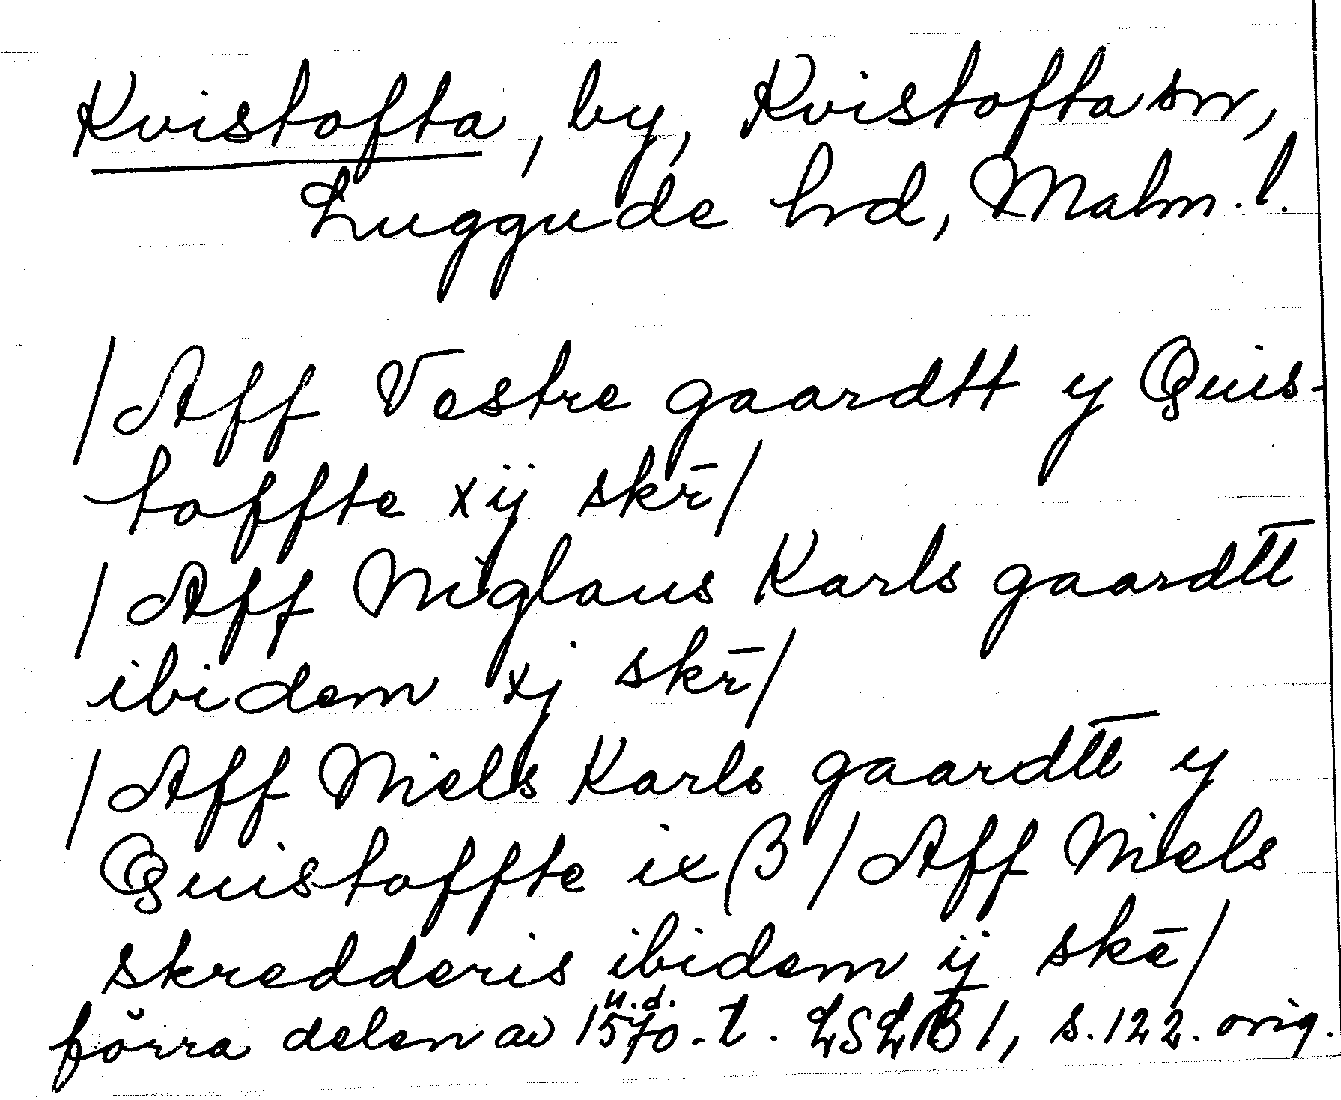 Kvistofta, by, Kvistofta sn,
Luggude hrd, Malm. l.
/Aff Vestre gaardtt y Quis-
toffte xij skr̄/
/Aff Niglaus Karls gaardtt
ibidem xj skr̄/
/Aff Niels Karls gaardtt y
Quistoffte ix β/Aff Niels
skredderis ibidem ij skē/
u.d.
förra delen av 1570-t. LSLB 1, s. 122. orig.